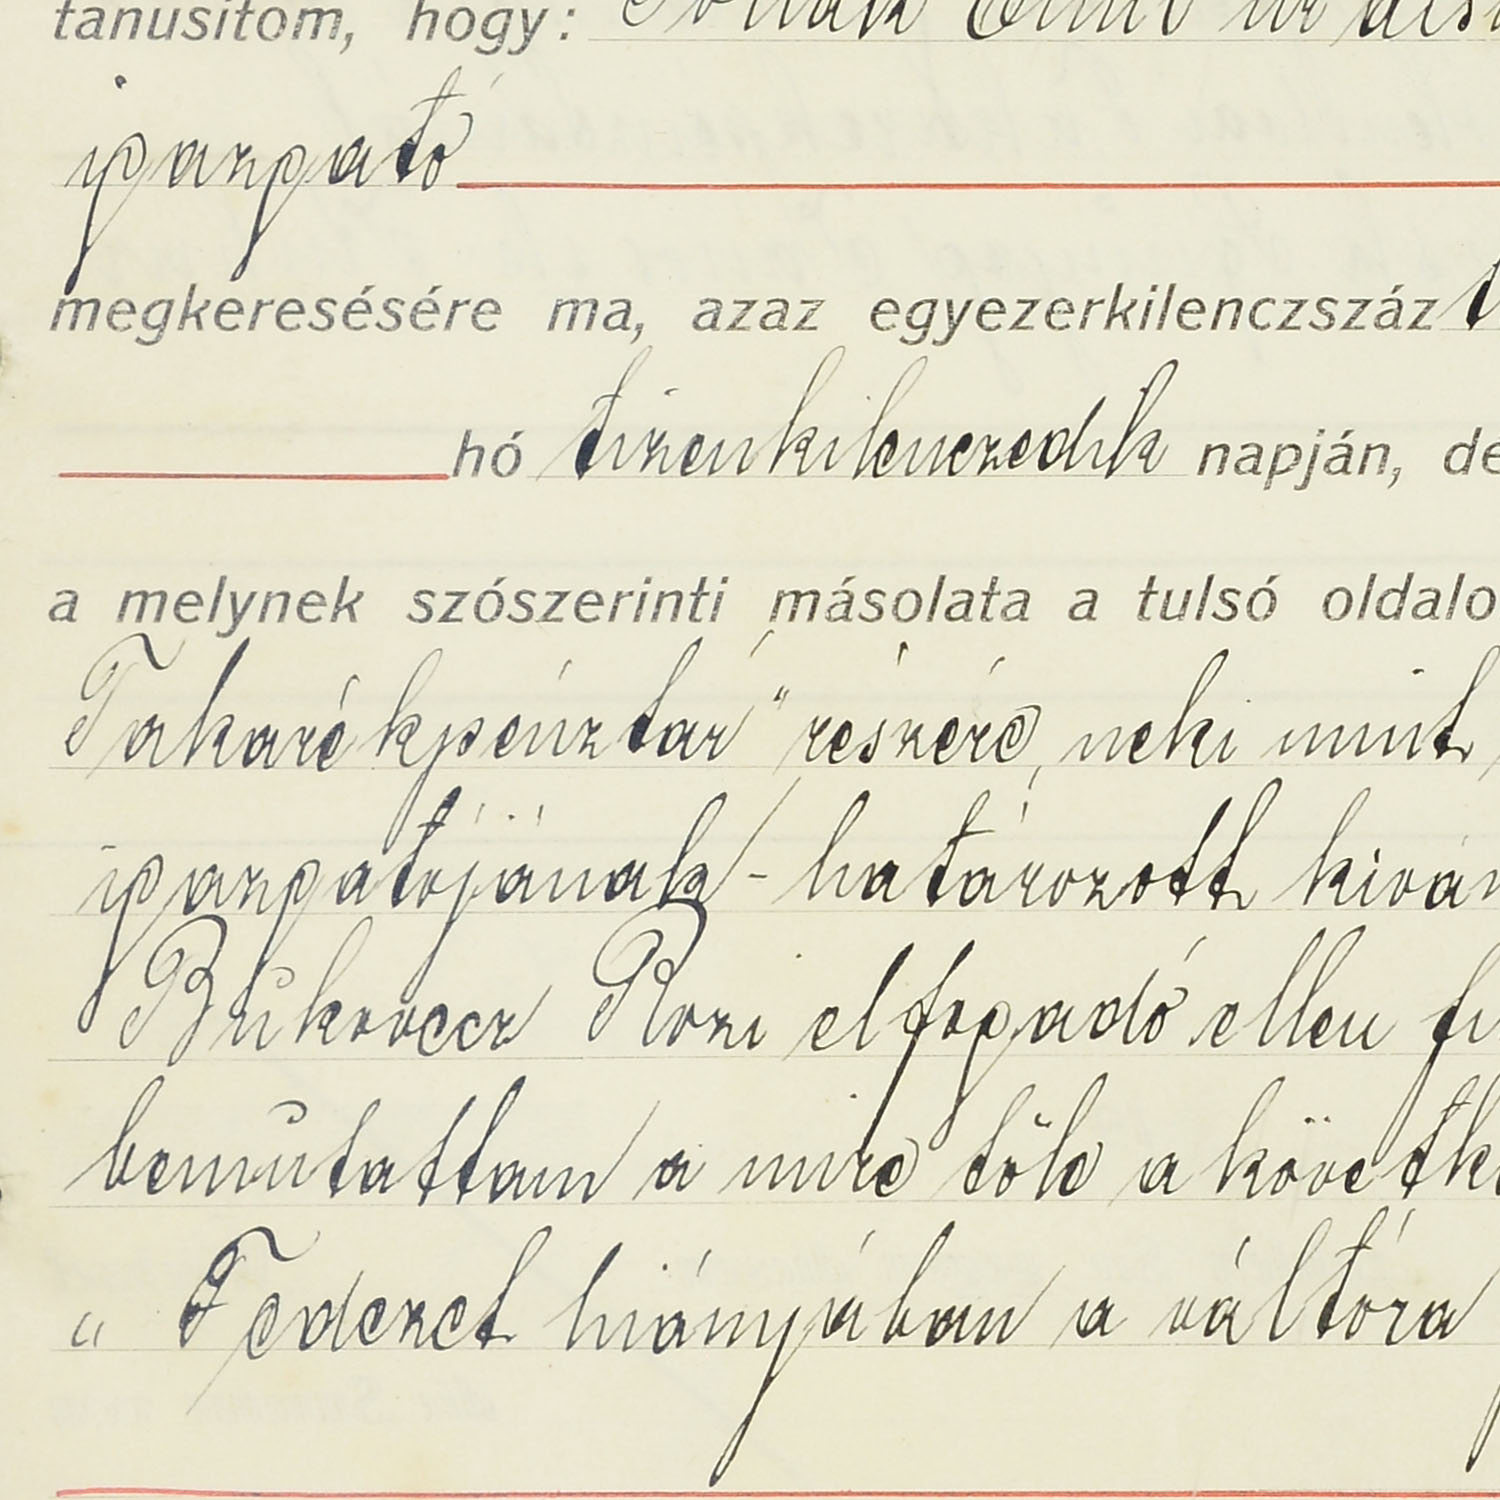 tanusítom, hogy: Pollák Emil úr
igazgató
megkeresésére ma, azaz egyezerkilenczszáz
hó tizenkilenczedik napján, de
a melynek szószerinti másolata a tulsó oldalo
Takarékpénztár" részére, neki mint
igazgatójának - határozott kíván
Bukovecz Rozi elfogadó ellen fi
bemutattam a mire tőle a követke
" Fedezet hiányában a váltóra